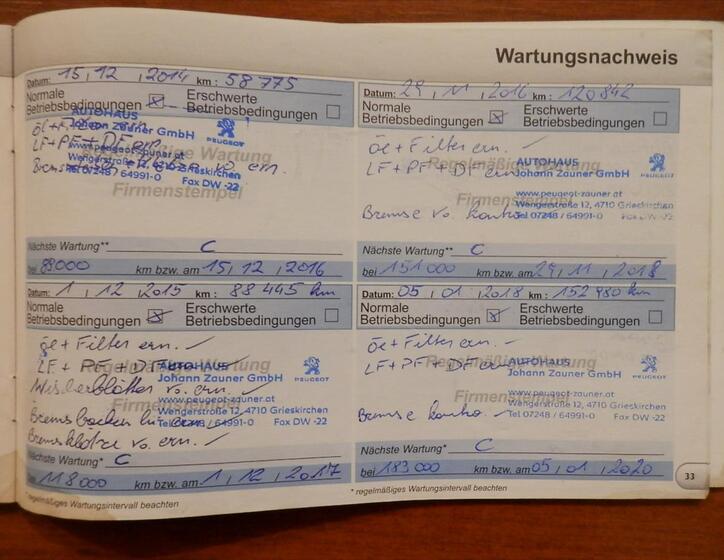 Wartungsnachweis
Datum: 15, 12, 2014 km: 58 775
Normale Betriebsbedingungen ☒ Erschwerte Betriebsbedingungen ☐
Öl + Filter ern.
LF + PF + DF ern.
Brems
AUTOHAUS
Johann Zauner GmbH
PEUGEOT
www.peugeot-zauner.at
Wengerstraße 12, 4710 Grieskirchen
Tel 07248 / 64991-0 Fax DW -22
Regelmäßige Wartung
Firmenstempel
Nächste Wartung** C
bei 89000 km bzw. am 15, 12, 2016
Datum: 1, 12, 2015 km: 88 445 km
Normale Betriebsbedingungen ☒ Erschwerte Betriebsbedingungen ☐
Öl + Filter ern. ✓
LF + PF + DF ern. ✓
Wischerblätter vo. ern. ✓
Bremsbacken hi. ern. ✓
Bremsklötze vo. ern. ✓
AUTOHAUS
Johann Zauner GmbH
PEUGEOT
www.peugeot-zauner.at
Wengerstraße 12, 4710 Grieskirchen
Tel 07248 / 64991-0 Fax DW -22
Regelmäßige Wartung
Firmenstempel
Nächste Wartung* C
bei 118000 km bzw. am 1, 12, 2017
* regelmäßiges Wartungsintervall beachten
Datum: 29, 11, 2016 km: 120 842
Normale Betriebsbedingungen ☒ Erschwerte Betriebsbedingungen ☐
Öl + Filter ern. ✓
LF + PF + DF ern.
Bremse vo. kontro.
AUTOHAUS
Johann Zauner GmbH
PEUGEOT
www.peugeot-zauner.at
Wengerstraße 12, 4710 Grieskirchen
Tel 07248 / 64991-0 Fax DW -22
Regelmäßige Wartung
Firmenstempel
Nächste Wartung** C
bei 151 000 km bzw. am 29, 11, 2018
Datum: 05, 01, 2018 km: 152 980 km
Normale Betriebsbedingungen ☒ Erschwerte Betriebsbedingungen ☐
Öl + Filter ern. ✓
LF + PF + DF ern.
Bremse kontro. ✓
AUTOHAUS
Johann Zauner GmbH
PEUGEOT
www.peugeot-zauner.at
Wengerstraße 12, 4710 Grieskirchen
Tel 07248 / 64991-0 Fax DW -22
Regelmäßige Wartung
Firmenstempel
Nächste Wartung* C
bei 183 000 km bzw. am 05, 01, 2020
* regelmäßiges Wartungsintervall beachten
33